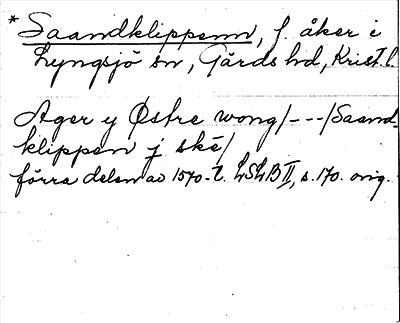 * Saandklippenn, f. åker i
Lyngsjö sn, Gärds hd, Krist. l.
Ager y Østre wong/---/Saand-
klippen j ské/
förra delen av 1570-t. LSLB II, s. 170. orig.